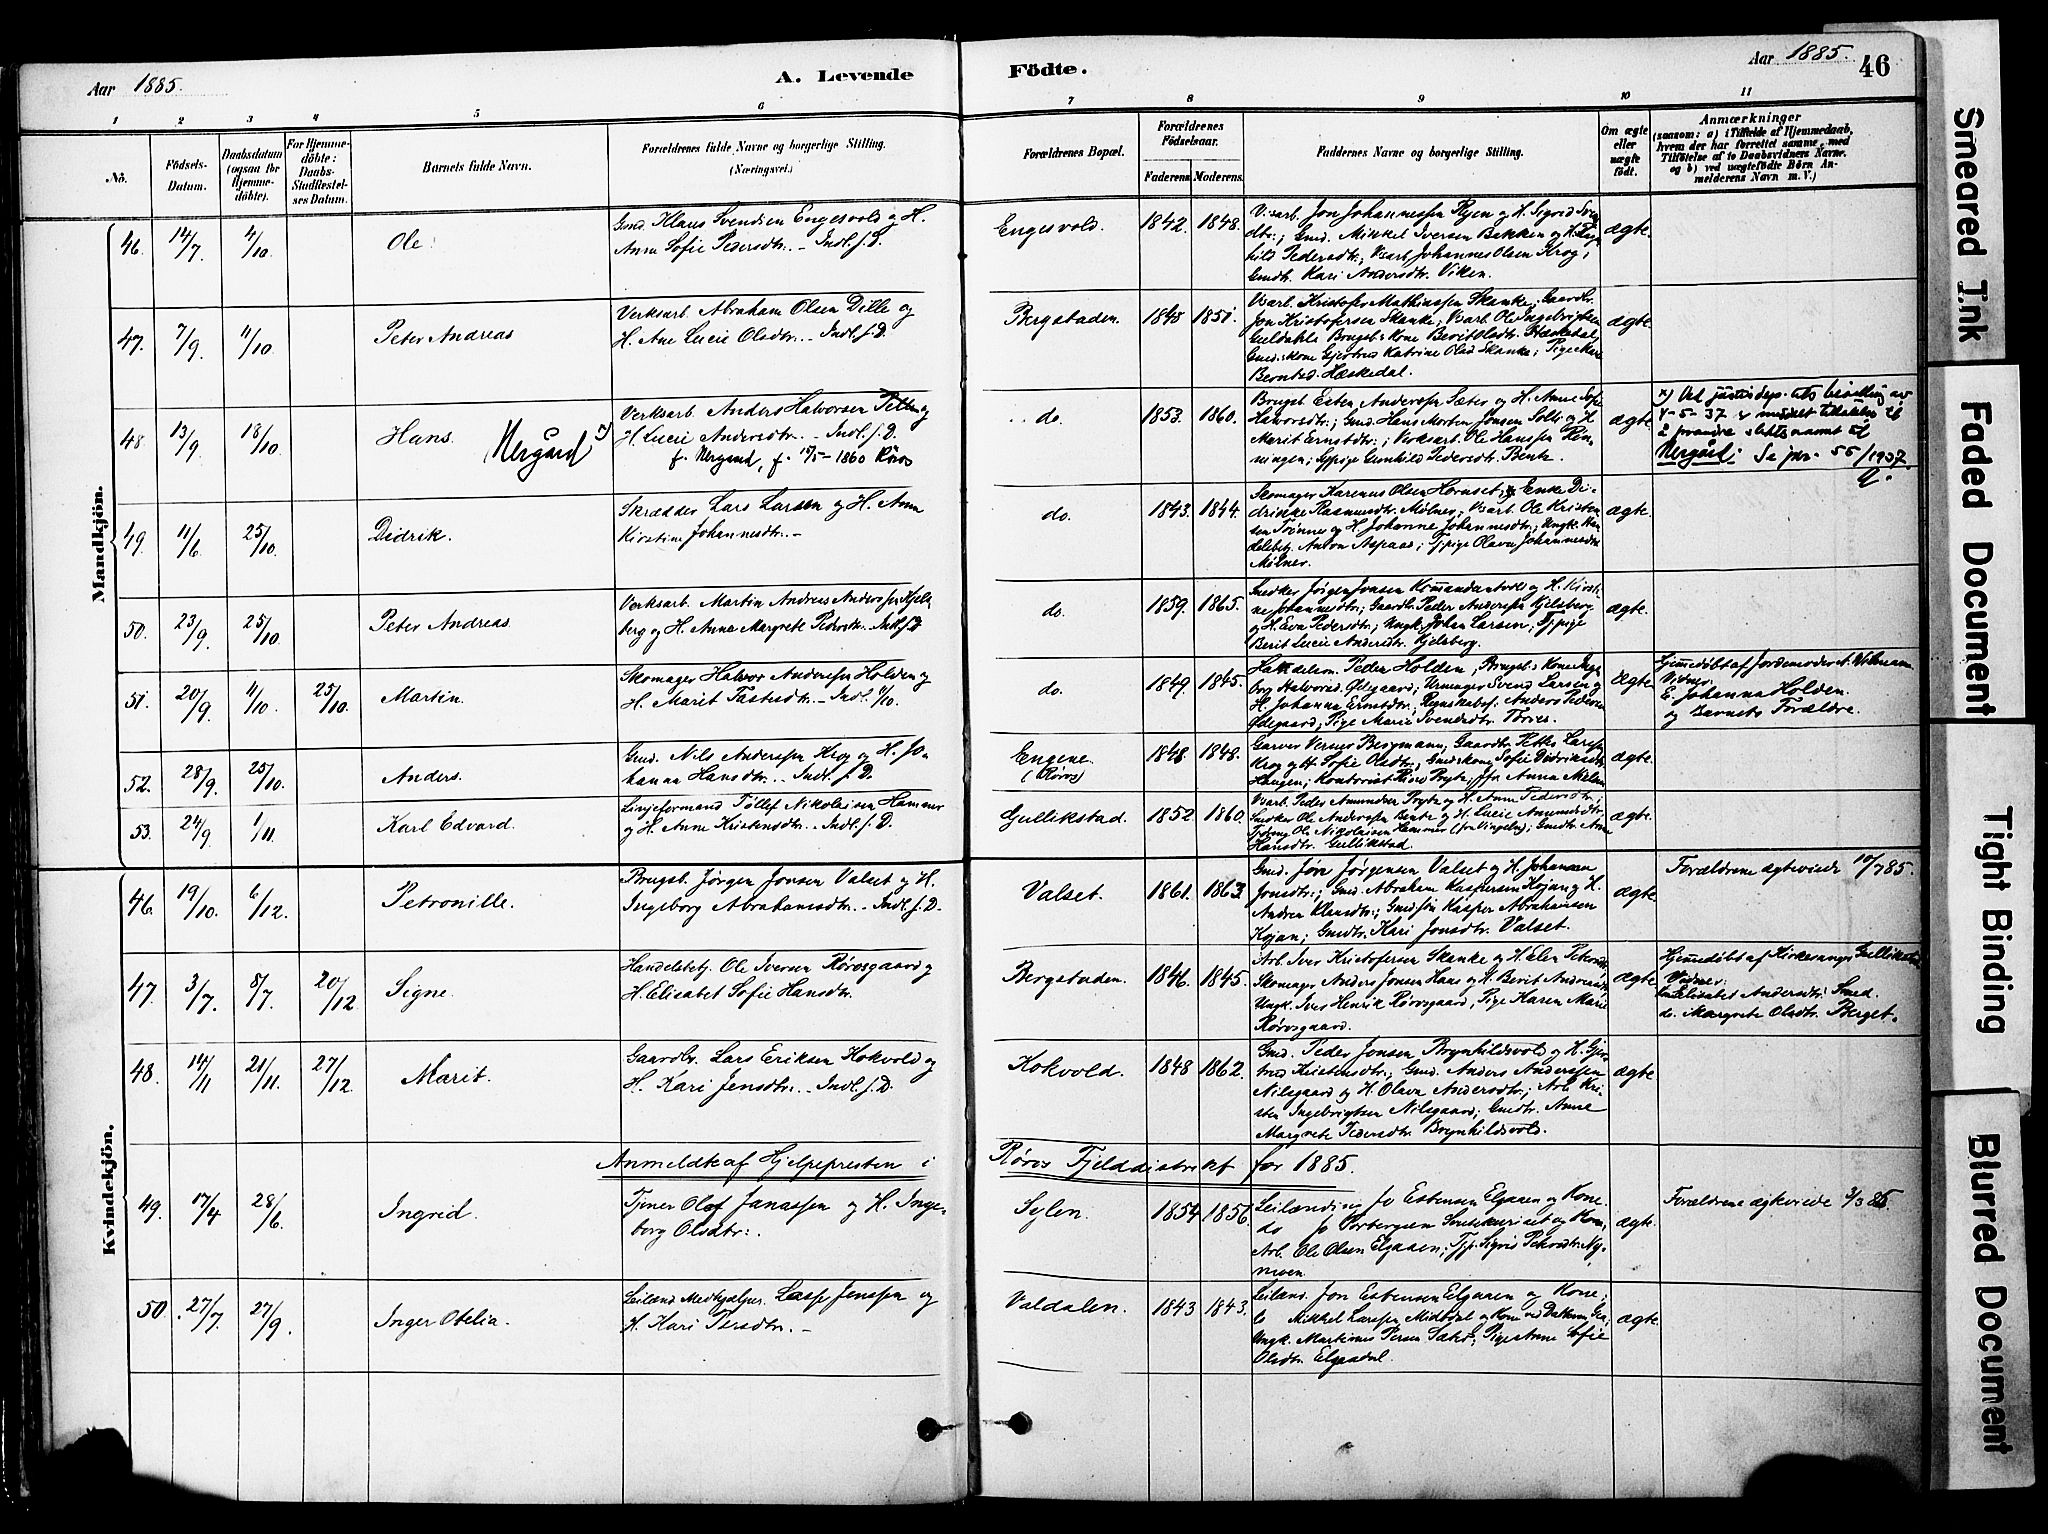 Aar 1885.
A. Levende
Födte.
Aar 1885.
46
1 2 3 4 5 6 7 8 9 10 11
No.
Födsels-Datum.
Daabsdatum (ogsaa for Hjemme-döbte).
For Hjemme-döbte: Daabs-Stadfæstel-ses Datum.
Barnets fulde Navn.
Forældrenes fulde Navne og borgerlige Stilling.
(Næringsvei.)
Forældrenes Bopæl.
Forældrenes Födselsaar.
Faderens. Moderens.
Faddernes Navne og borgerlige Stilling.
Om ægte eller uægte födt.
Anmærkninger
(saasom: a) i Tilfælde af Hjemmedaab,
hvem der har forrettet samme, med
Tilföielse af to Daabsvidners Navne.
og b) ved uægtefödte Börn An-
melderens Navn m. V.)
Mandkjön.
46. 14/7 4/10 Ole.
Gmd. Klaus Svendsen Engesvold og H.
Anne Sofie Pedersdtr. - Indl. f. D.
Engesvold. 1842. 1848.
V.arb. Jon Johannessen Ryen og H. Sigrid Sven
dtr.; Gmd. Mikkel Iversen Bakken og H. Rag
hild Pedersdtr.; V.arb. Johannes Olsen Krog;
Gmdtr. Kari Andersdtr. Viken.
ægte.
47. 7/9 11/10 Peter Andreas
Verksarb. Abraham Olsen Dille og
H. Ane Lucie Olsdtr. - Indl. f. D.
Bergstaden. 1845 1851.
V.arb. Kristofer Mathiassen Skanke; Gaardbr.
Jon Kristofersen Skanke; V.arb. Ole Ingebrigtsen
Guldahl; Brugsb.s Kone Berit Olsdtr.
Gmd.s Kone Gjertrud Katrine Olsd. Skanke; Pige Kari
Berntsd. Hæskedal.
ægte.
48 13/9 18/10 Hans. (Nergård x)
Verksarb. Anders Halvorsen og
H. Lucie Andersdtr. - Indl. f. D.
f. Nergaard, f. 1860 Røros
do. 1853. 1860.
Brugsb. Esten Andersen Sæter og H. Anne Sofie
Halvorsdtr.; Gmd. Hans Morten Jonsen Solli og H.
Marit Ernstdtr.; Verksarb. Ole Hanssen Røn-
ningen; Tjpige Gunhild Pedersdtr. Bentz.
ægte.
x) Ved justisdep.ets bevilling av
4-5-37 er meddelt tilladelse til
å forandre slektsnavnet til
Nergård. Se jnr. 55/1937.
49. 11/6 25/10 Didrik.
Skrædder Lars Larsen og H. Anne
Kirstine Johannesdtr. -
do. 1843. 1844.
Skomager Karenus Olsen Hornset; Enke Di-
drikke Rasmusdtr. Milner; V.arb. Ole Kristen
sen Trønnes og H. Johanne Johannesdtr.; Ungk. Han
delsbetj. Anton Aspaas; Tjpige Olava Johannesdtr.
Milner.
ægte.
50. 23/9 25/10 Peter Andreas.
Verksarb. Martin Andreas Anderssen Kjels
berg og H. Anne Margrete Pedersdtr. Indl. f. D
do. 1859. 1865.
Snedker Jørgen Jonsen Kommandantvold og H. Kirsti
ne Johannesdtr.; Gaardbr. Peder Anderssen Kjelsberg
og H. Eva Pedersdtr.; Ungk. Johan Larsen, Tjpige
Berit Lucie Andersdtr. Kjelsberg.
ægte.
51. 20/9 11/10. 25/10. Martin.
Skomager Halvor Anderssen Holden og
H. Marit Tostensdtr. - Indl. 11/10.
do. 1849. 1845.
Handelsm. Peder Holden; Brugsb.s Kone Inge
borg Halvorsd. Ødegaard; Urmager Svend Larsen og
H. Johanna Ernstdtr.; Regnskabsf. Anders Pedersen
Ødegaard; Pige Marie Svendsdtr. Torres.
ægte
Hjemmedøbt af Jordemoder A. Wolmann.
Vidner:
E. Johanna Holden.
og Barnets Forældre.
52. 28/9 25/10. Anders.
Gmd. Nils Anderssen Krog og H. Jo-
hanna Hansdtr. - Indl. f. D.
Engene. (Røros) 1848. 1848.
Garver Verner Bergmann; Gaardbr. Peder Larssen
Krog og H. Sofie Olsdtr.; Gmdskone Sofie Didriksdtr.
Haugen; Kontorist Prytz; Jfr. Anna Milner
ægte.
53. 24/9 1/11 Karl Edvard.
Linjeformand Tollef Nikolaisen Hammer
og H. Anne Kristensdtr. - Indl. f. D.
Gullikstad. 1852. 1860.
V.arb. Peder Amundsen Prytz og H. Anne Pedersdtr.;
Snedker Ole Anderssen Bentz og H. Lucie Amundsdtr.;
Tjdreng Ole Nikolaisen Hammer (fra Vingelen); Gmdtr. Anne
Hansdtr. Gullikstad
ægte.
Kvindekjön.
46. 19/10. 6/12. Petronille.
Brugsb. Jørgen Jonsen Valset og H.
Ingeborg Abrahamsdtr. - Indl. f. D.
Valset. 1861. 1863.
Gmd. Jøn Jørgensen Valset og H. Johanna
Jonsdtr.; Gmd. Abraham Kaspersen Kojan og H.
Andrea Klausdtr.; Gmdsøn Kasper Abrahamsen
Kojan; Gmdtr. Kari Jonsdtr. Valset.
ægte.
Forældrene ægteviede 10/7 85.
47. 3/7. 8/7. 20/12 Signe.
Handelsbetj. Ole Iversen Rørosgaard og
H. Elisabet Sofie Hansdtr.
Bergstaden. 1846. 1845.
Arb. Iver Kristofersen Skanke og H. Elen Pedersdtr.
Skomager Anders Jonsen Haas og H. Berit Andreasdtr.
Ungk. Iver Henrik Rørosgaard, Pige Karen Marie
Rørosgaard.
ægte
Hjemmedøbt af Kirkesanger Gullikstad
Vidner:
Elisabet Andersdtr. Smed.
do. Margrete Olsdtr. Berget.
48. 14/11 21/11. 27/12 Marit.
Gaardbr. Lars Eriksen Kokvold og
H. Kari Jensdtr. - Indl. f. D.
Kokvold. 1848 1862.
Gmd. Peder Jonsen Brynhildsvold og H. Gjer-
trud Kristensdtr.; Gmd. Anders Anderssen
Nilsgaard og H. Olava Andersdtr.; Arb. Kri-
sten Ingebrigtsen Nilsgaard; Gmdtr. Anne
Margrete Pedersdtr. Brynhildsvold.
ægte
Anmeldte af Hjelpepresten i Røros Fjelddistrikt for 1885.
49. 17/4 28/6. Ingrid.
Tjener Olof Janassen og H. Inge-
borg Olsdtr.
Sylen. 1854 1856.
Leilænding Jo Estensen Elgaaen og Kone.
do Jo Torbergsen og Kone,
Arb. Ole Olsen Elgaaen; Tjp. Sigrid Pedersdtr. Ny-
moen
ægte.
Forældrene ægteviede 3/3 85.
50. 27/7. 27/9. Inger Otelia.
Leilænd. Medhjælper. Lasse Jonssen og
H. Kari Persdtr. -
Valdalen. 1843 1843.
Leilænd. Jon Estensen Elgaaen og Kone;
Mikkel Larssen Midtdal og Kone
Ungk. Martinus Persen Sæter; Pige Anne Sofie
Olsdtr. Elgaadal.
ægte.
Smeared Ink
Faded Document
Tight Binding
Blurred Document